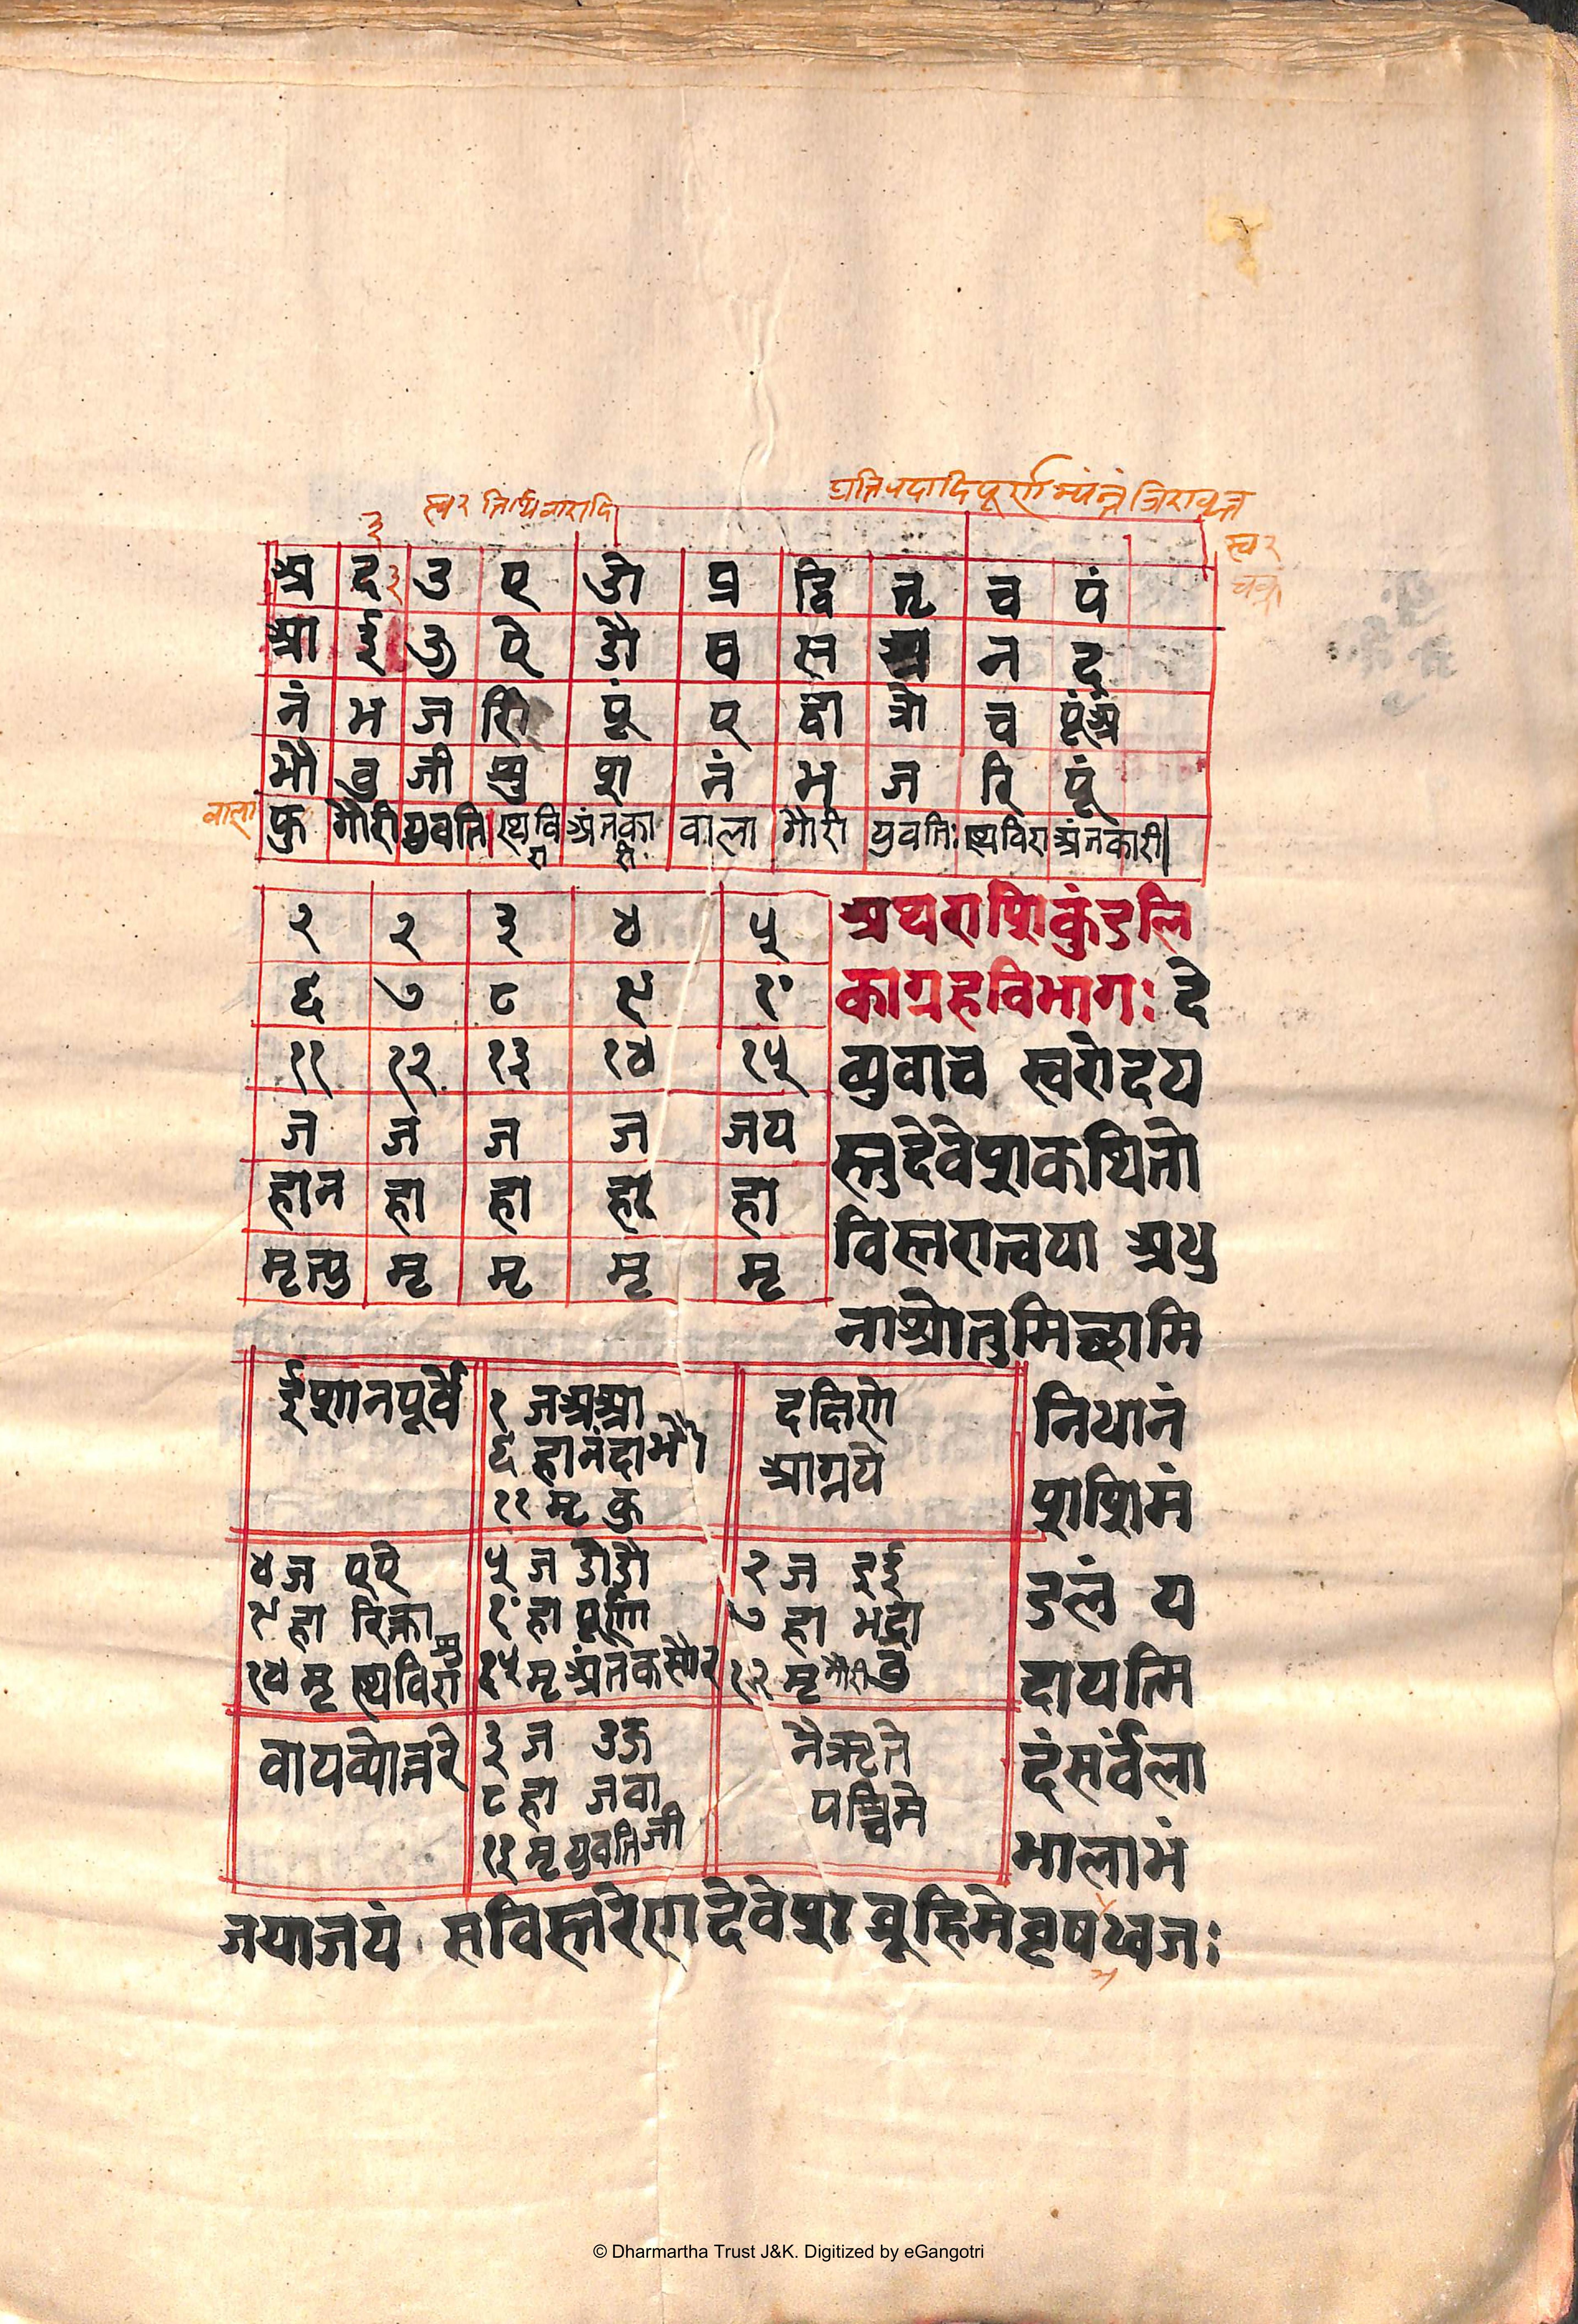 स्वर तिथि वारादि
स्वर
अ इ उ ए ओ प्र द्वि तृ च पं
आ ई ऊ ऐ औ ष स अ न द
नं भ ज रि पूं ए द्वा त्रो च पूंअं
भौ बु जी शु श नं भ ज रि पूं
वाला
कु गौरी युवति स्थवि अंतका वाला गौरी युवतिः स्थविरा अंतकारी
१ २ ३ ४ ५
६ ७ ८ ९ १०
११ १२ १३ १४ १५
ज ज ज ज जय
हान हा हा हा हा
मृत्यु मृ मृ मृ मृ
अथ राशिकुंडलि
का ग्रहविभागः दे
व्युवाच स्वरोदय
स्तु देवेश कथितो
विस्तरात्वया अधु
ना श्रोतुमिच्छामि
ईशानपूर्वे
१ ज अआ
६ हा नंदा भौ
११ मृ कु
दक्षिणे
आग्नये
४ ज एऐ
९ हा रिक्ता
१४ मृ स्थविरा शु
५ ज ओऔ
१० हा पूर्णा
१५ मृ अंतक सौर
२ ज इई
७ हा भद्रा
१२ मृ गौरी बु
वायव्योत्तरे
३ ज उऊ
८ हा जया
१३ मृ युवति जी
नैऋते
पश्चिमे
निधानं
शशिमं
डलं य
दायत्मि
दं सर्वला
भालाभं
जयाजयं सविस्तरेण देवेश ब्रूहि मे वृषध्वजः
© Dharmartha Trust J&K. Digitized by eGangotri